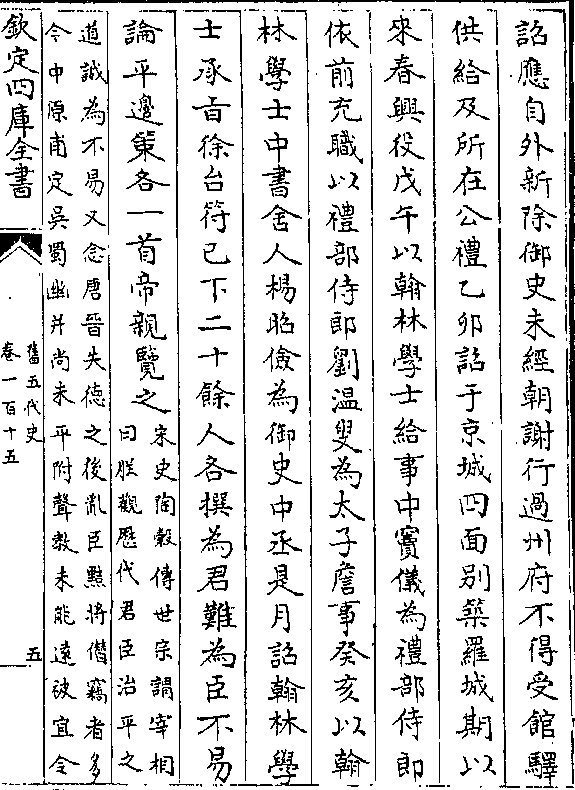 詔應自外新除御史未經朝謝行過州府不得受館驛
供給及所在公禮乙卯詔于京城四面别築羅城期以
來春興役戊午以翰林學士給事中竇儀為禮部侍郎
依前充職以禮部侍郎劉温叟為太子詹事癸亥以翰
林學士中書舍人楊昭儉為御史中丞是月詔翰林學
士承旨徐台符已下二十餘人各撰為君難為臣不易
論平邊策各一首帝親覽之
宋史陶穀傳世宗謂宰相
曰朕觀歷代君臣治平之
道誠為不易又念唐晉失德之後亂臣黠將僭竊者多
今中原甫定吳蜀幽并尚未平附聲教未能遠被宜令
欽定四庫全書
舊五代史
卷一百十五
五